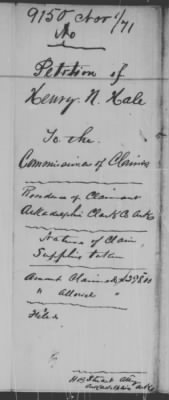 9150 Nov 1/71
No
Petition of
Henry N. Hale
To the
Commissioners of Claims
Residence of Claimant
Arkadelphia Clark Co Arks
Nature of Claim
Supplies taken
Amount Claimed $398.00
" Allowed "
Filed
H B Stuart Atty
Arkadelphia Arks